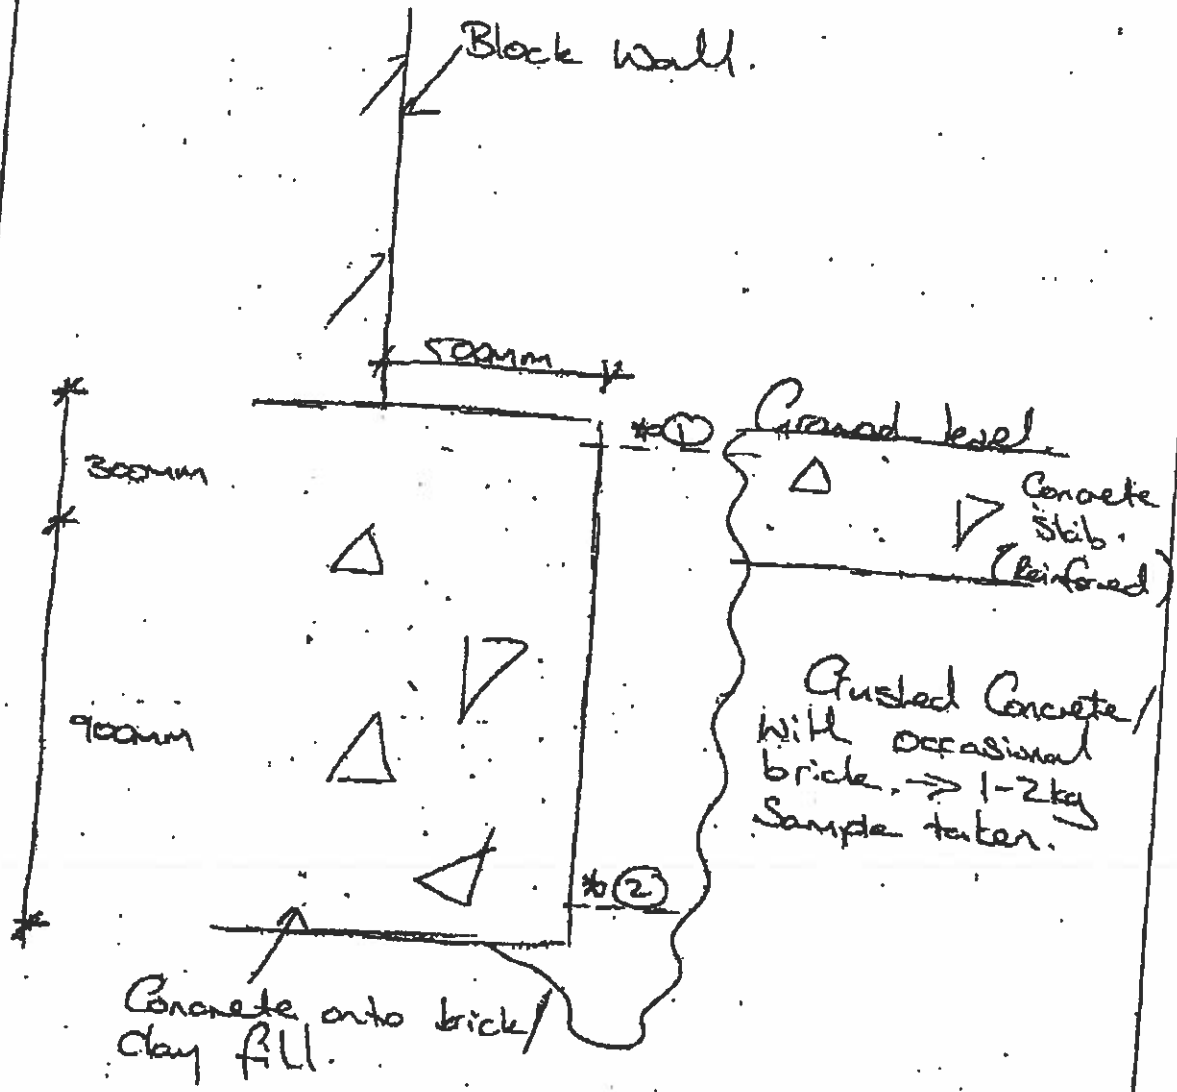 Block Wall.
500mm
*①
Ground level
300mm
Concrete
Slab.
(Reinforced)
Crushed Concrete/
With occasional
brick. → 1-2kg
Sample taken.
900mm
*②
Concrete onto brick/
Clay fill.